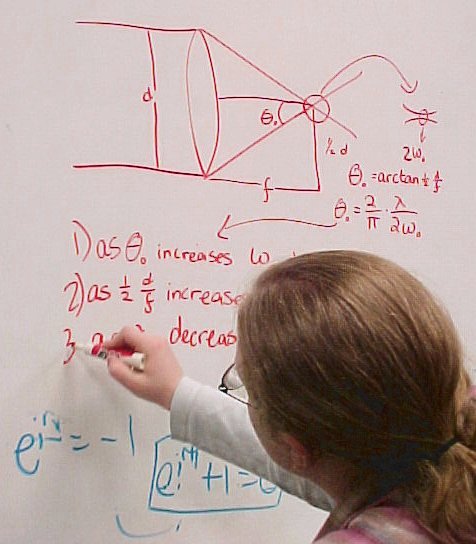 d
θ₀
½ d
f
2w₀
θ₀ = arctan ½ d/f
θ₀ = 2/π · λ/2w₀
1) as θ₀ increases w
2) as ½ d/f increase
3 decreas
e^iπ = -1
e^iπ + 1 = 0